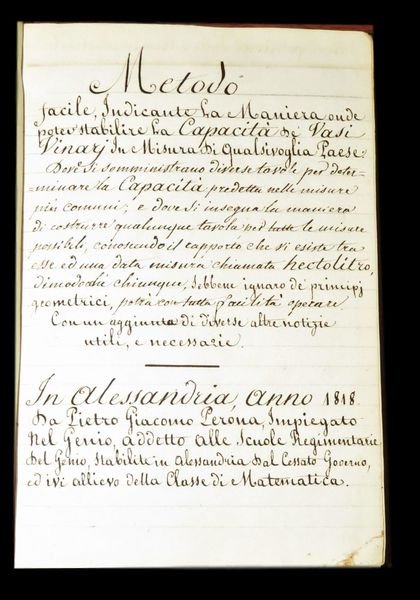 Metodo
facile, Indicante La Maniera onde
poter stabilire La Capacità de' Vasi
Vinarj In Misura di Qualsivoglia Paese:
Dove si somministrano diverse tavole per deter-
-minare la Capacità predetta nelle misure
più comuni; e dove si insegna la maniera
di costrurre qualunque tavola per tutte le misure
possibili, conoscendo il rapporto che vi esiste tra
esse ed una data misura chiamata hectolitro,
dimodoché chiunque, sebbene ignaro de' principj
geometrici, potrà con tutta facilità operare.
Con un aggiunta di diverse altre notizie
utili, e necessarie.
In Alessandria, Anno 1818.
Da Pietro Giacomo Perona, Impiegato
Nel Genio, addetto alle Scuole Regimentarie
del Genio, stabilite in Alessandria dal Cessato Governo,
ed ivi allievo della Classe di Matematica.